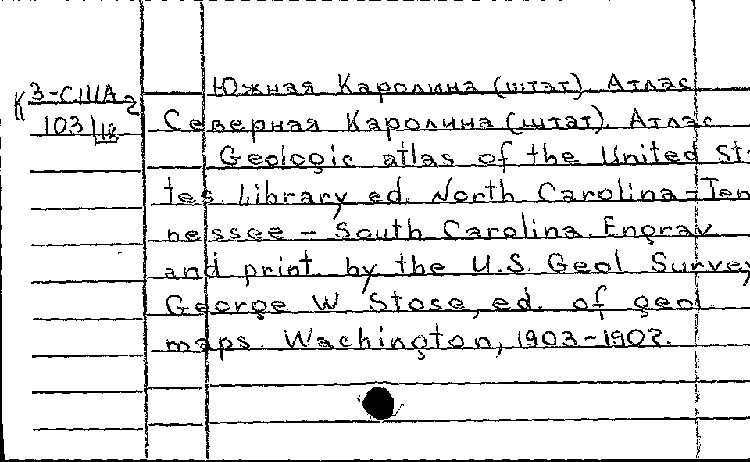 Южная Каролина (штат). Атлас
К 3-США
103/12
Северная Каролина (штат). Атлас
Geologic atlas of the United Sta-
tes Library ed. North Carolina-Ten
nessee - South Carolina. Engrav
and print. by the U.S. Geol Survey
George W. Stose, ed. of geol
maps Wachington, 1903-1907.